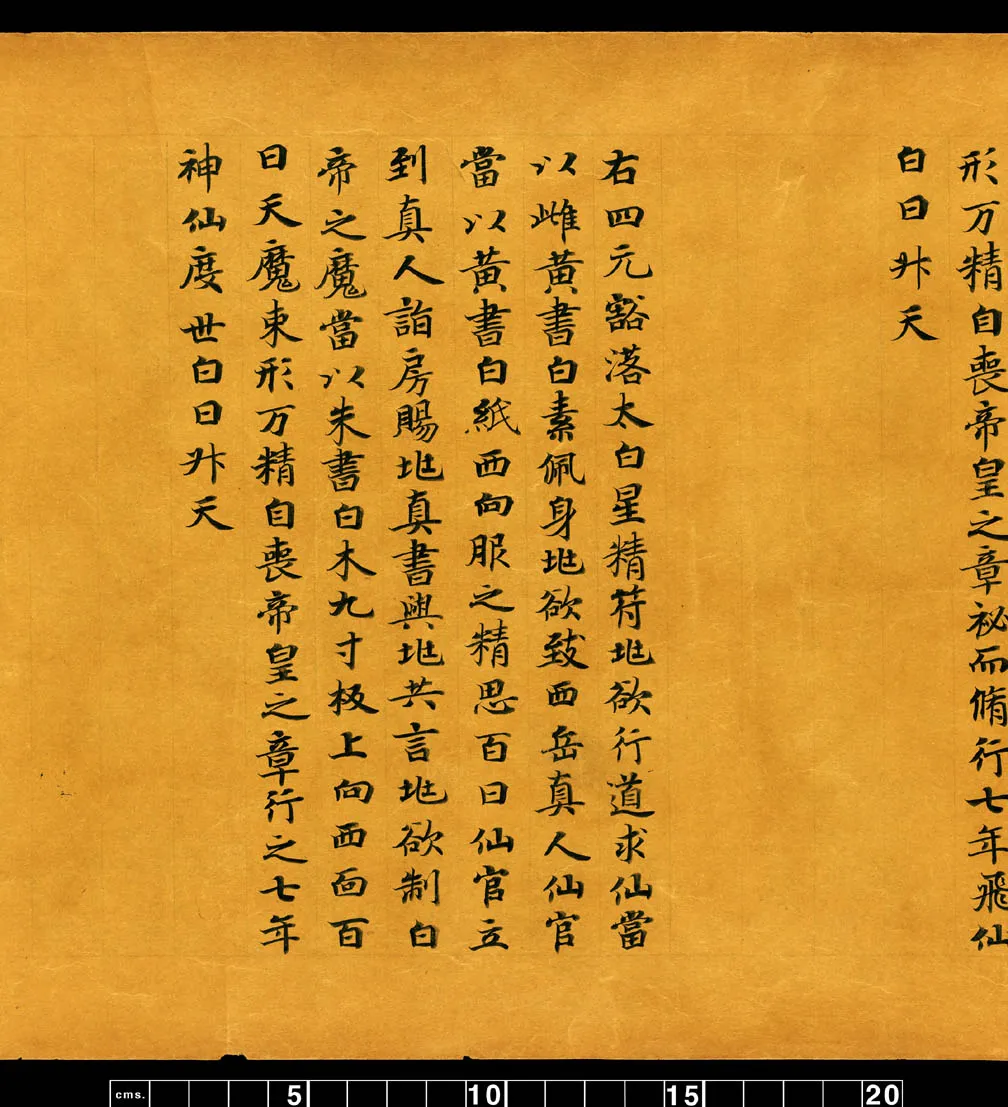 形万精自喪帝皇之章祕而脩行七年飛仙
白日升天
右四元豁落太白星精符兆欲行道求仙當
以雌黃書白素佩身兆欲致西岳真人仙官
當以黃書白紙西向服之精思百日仙官立
到真人詣房賜兆真書與兆共言兆欲制白
帝之魔當以朱書白木九寸板上向西面百
日天魔束形万精自喪帝皇之章行之七年
神仙度世白日升天
cms. 5 10 15 20